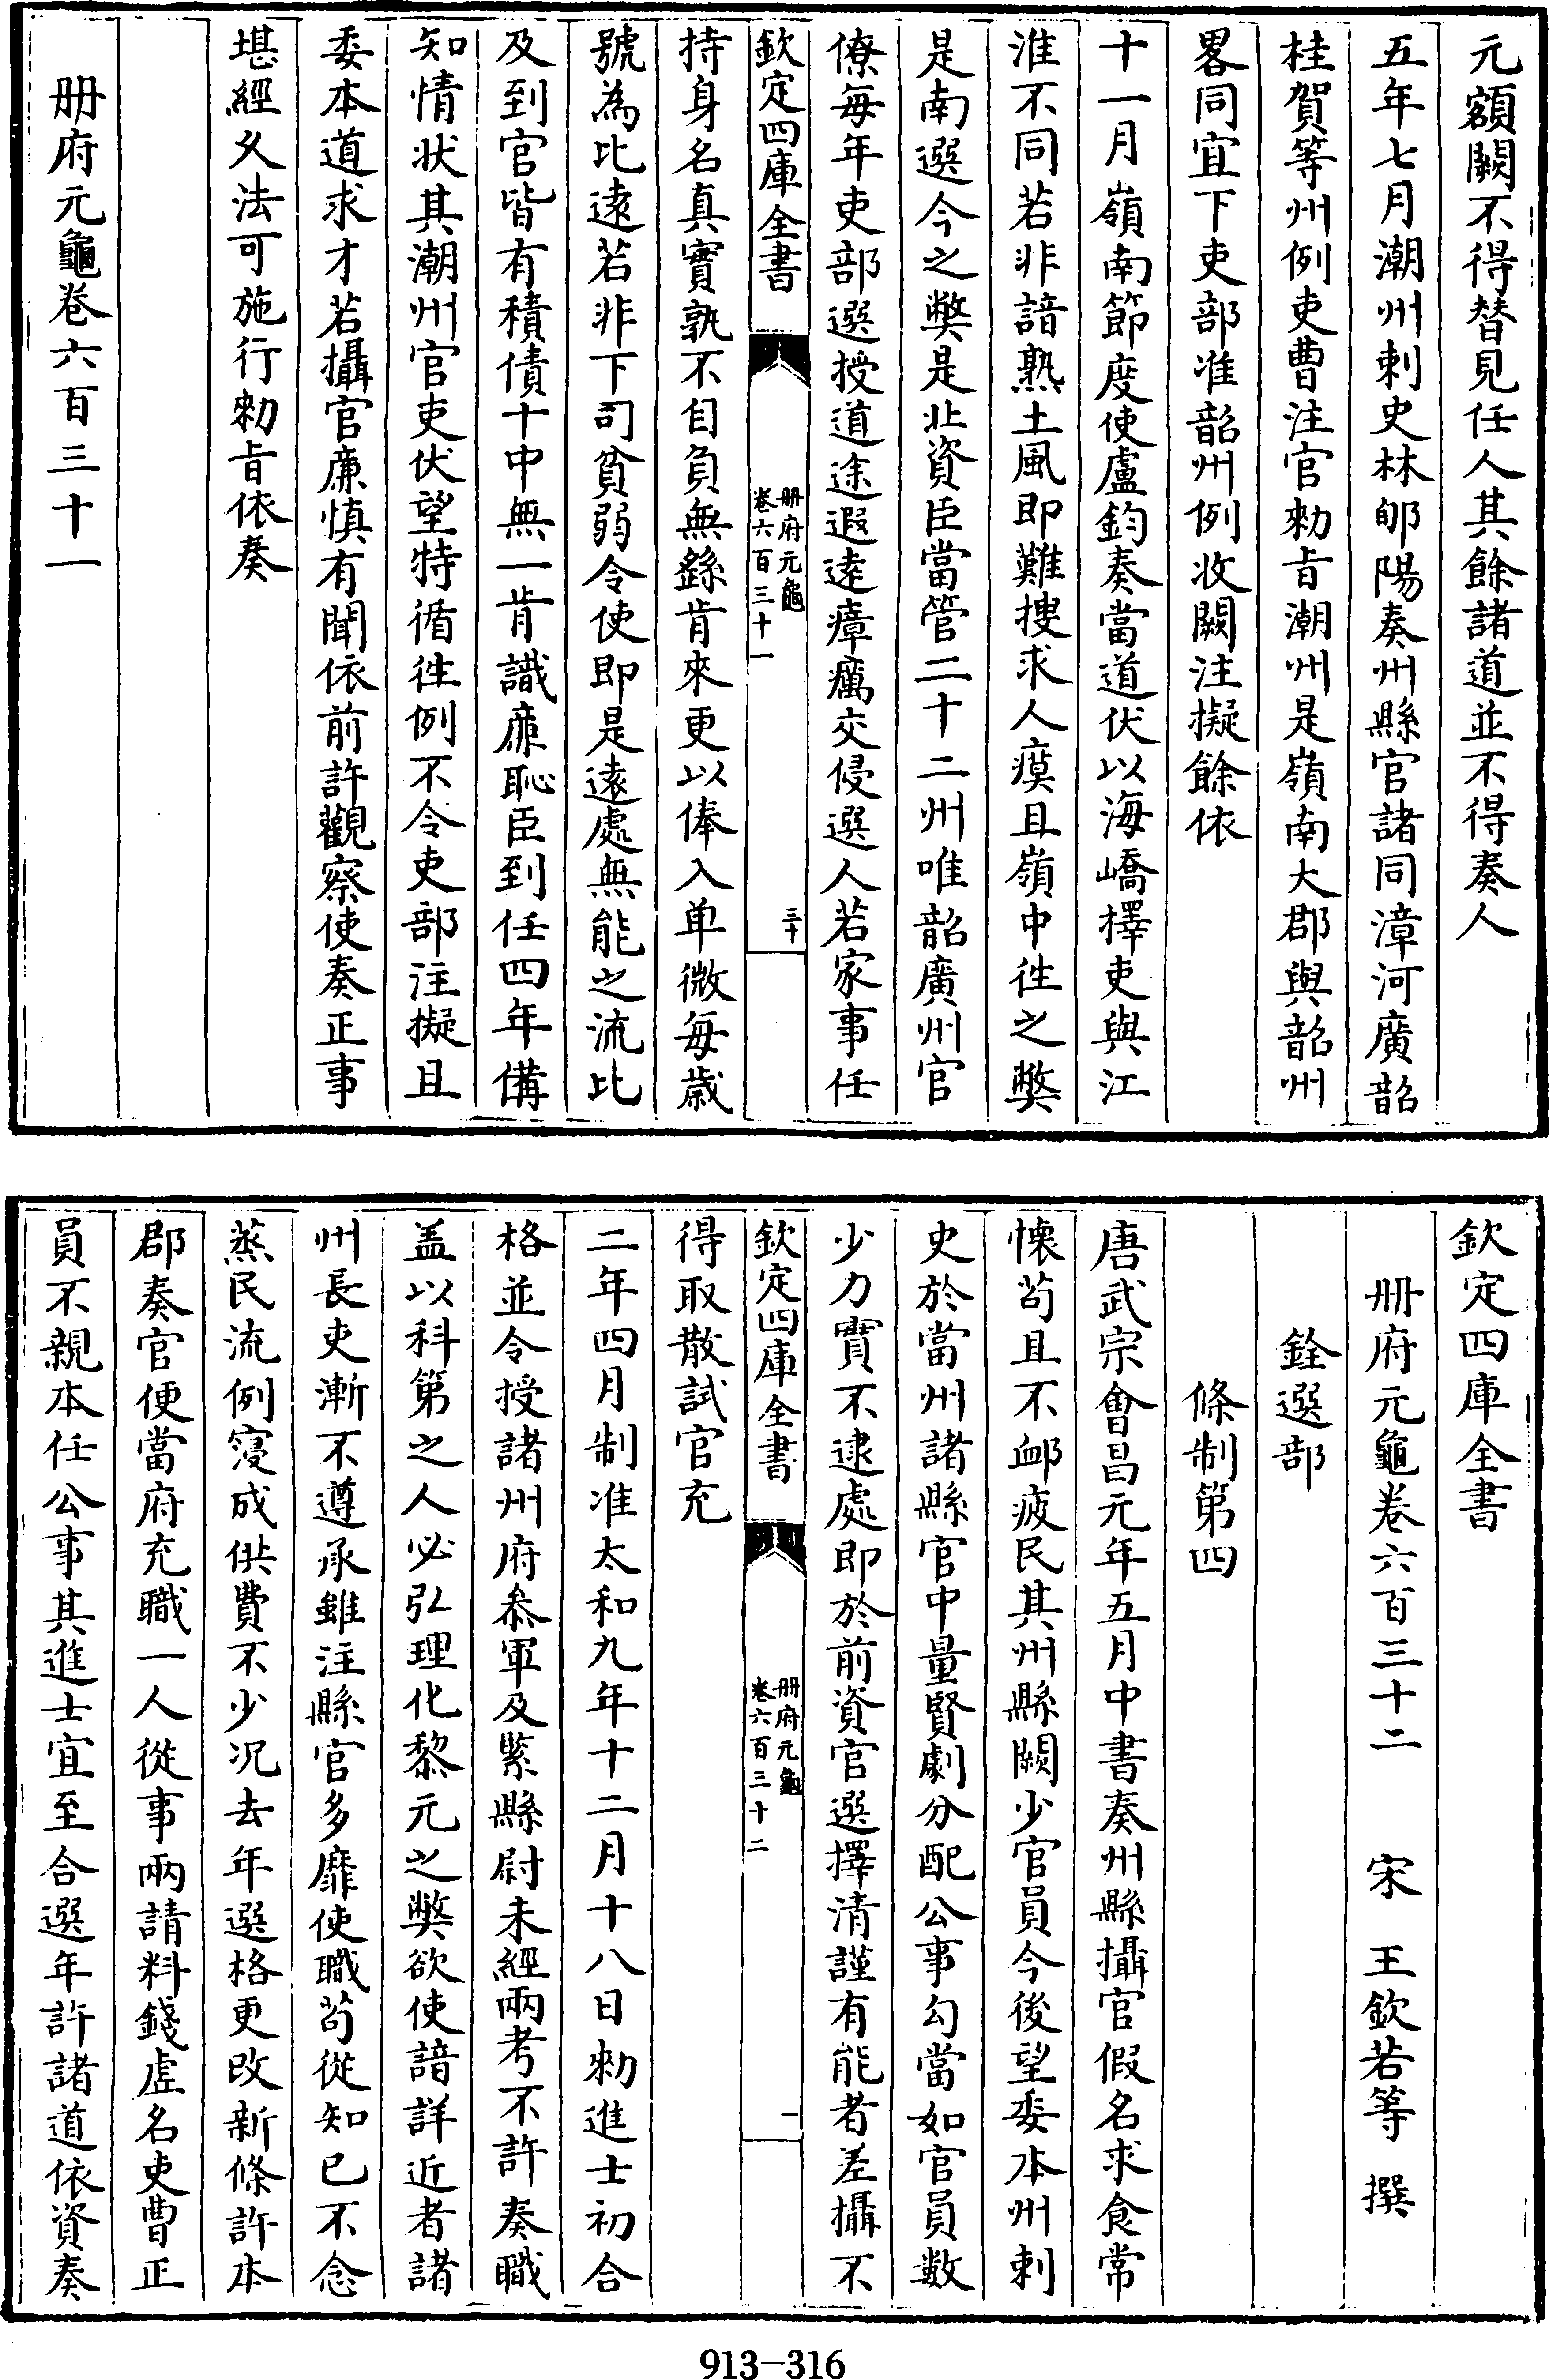 元額闕不得替見任人其餘諸道並不得奏人
五年七月潮州刺史林郇陽奏州縣官諸同漳河廣韶
桂賀等州例吏曹注官勑旨潮州是嶺南大郡與韶州
畧同宜下吏部准韶州例收闕注擬餘依
十一月嶺南節度使盧鈞奏當道伏以海嶠擇吏與江
淮不同若非諳熟土風即難搜求人瘼且嶺中徃之獘
是南選今之獘是北資臣當管二十二州唯韶廣州官
僚每年吏部選授道途遐遠瘴癘交侵選人若家事任
欽定四庫全書
册府元龜
卷六百三十一
三十
持身名真實孰不自負無繇肯來更以俸入单微每歳
號為比逺若非下司貧弱令使即是遠處無能之流比
及到官皆有積債十中無一肯識廉恥臣到任四年備
知情狀其潮州官吏伏望特循徃例不令吏部注擬且
委本道求才若攝官廉慎有聞依前許觀察使奏正事
堪經久法可施行勑旨依奏
册府元龜卷六百三十一
欽定四庫全書
册府元龜卷六百三十二 宋 王欽若等 撰
銓選部
條制第四
唐武宗會昌元年五月中書奏州縣攝官假名求食常
懐苟且不卹疲民其州縣闕少官員今後望委本州刺
史於當州諸縣官中量賢劇分配公事勾當如官員数
少力實不逮處即於前資官選擇清謹有能者差攝不
欽定四庫全書
册府元龜
卷六百三十二
一
得取散試官充
二年四月制准太和九年十二月十八日勑進士初合
格並令授諸州府叅軍及緊縣尉未經兩考不許奏職
盖以科第之人必弘理化黎元之獘欲使諳詳近者諸
州長吏漸不遵承雖注縣官多靡使職苟從知已不念
蒸民流例寖成供費不少况去年選格更改新條許本
郡奏官便當府充職一人從事兩請料錢虚名吏曹正
員不親本任公事其進士宜至合選年許諸道依資奏
913-316